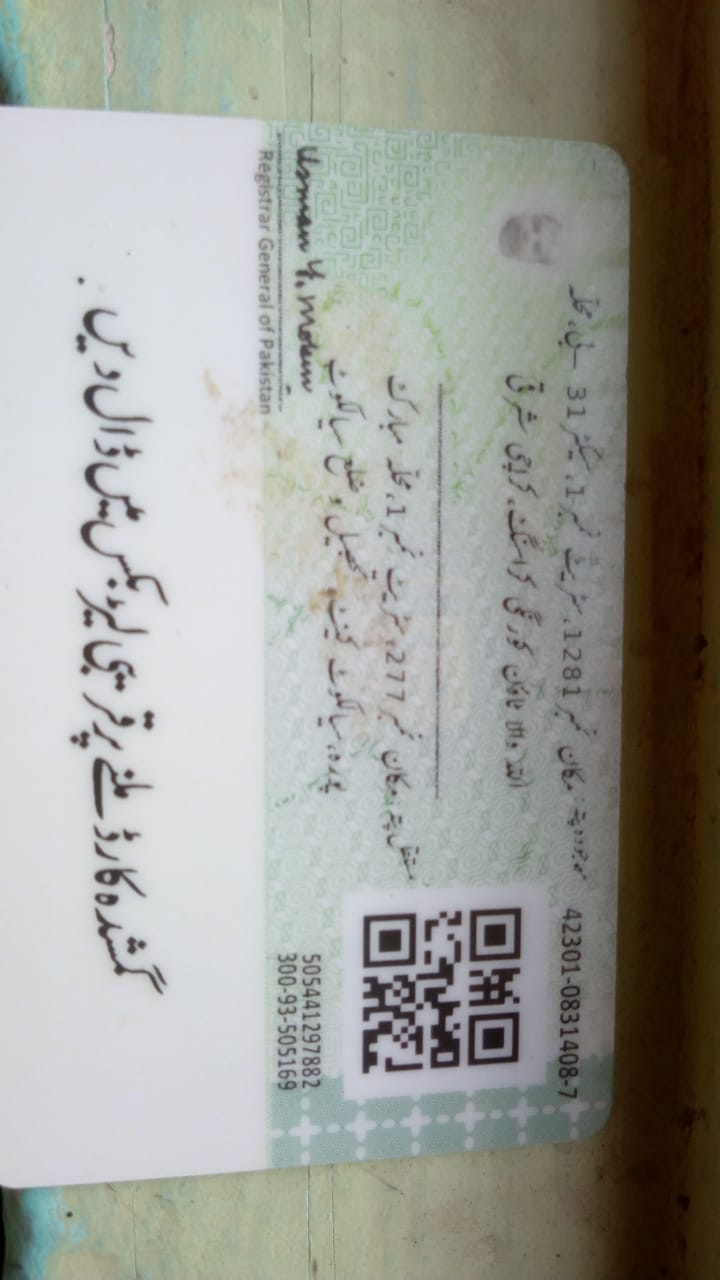 42301-0831408-7
موجودہ پتہ: مکان نمبر 1281، سٹریٹ نمبر 1، سیکٹر 31 ۔ بی، محلہ
اللہ والا ٹاؤن کورنگی کراسنگ، کراچی شرقی
مستقل پتہ: مکان نمبر 277، سٹریٹ نمبر 1، محلہ مبارک
پورہ، سیالکوٹ کینٹ، تحصیل و ضلع سیالکوٹ
505441297882
300-93-505169
Usman Y. Mobin
Registrar General of Pakistan
گمشدہ کارڈ ملنے پر قریبی لیٹر بکس میں ڈال دیں.